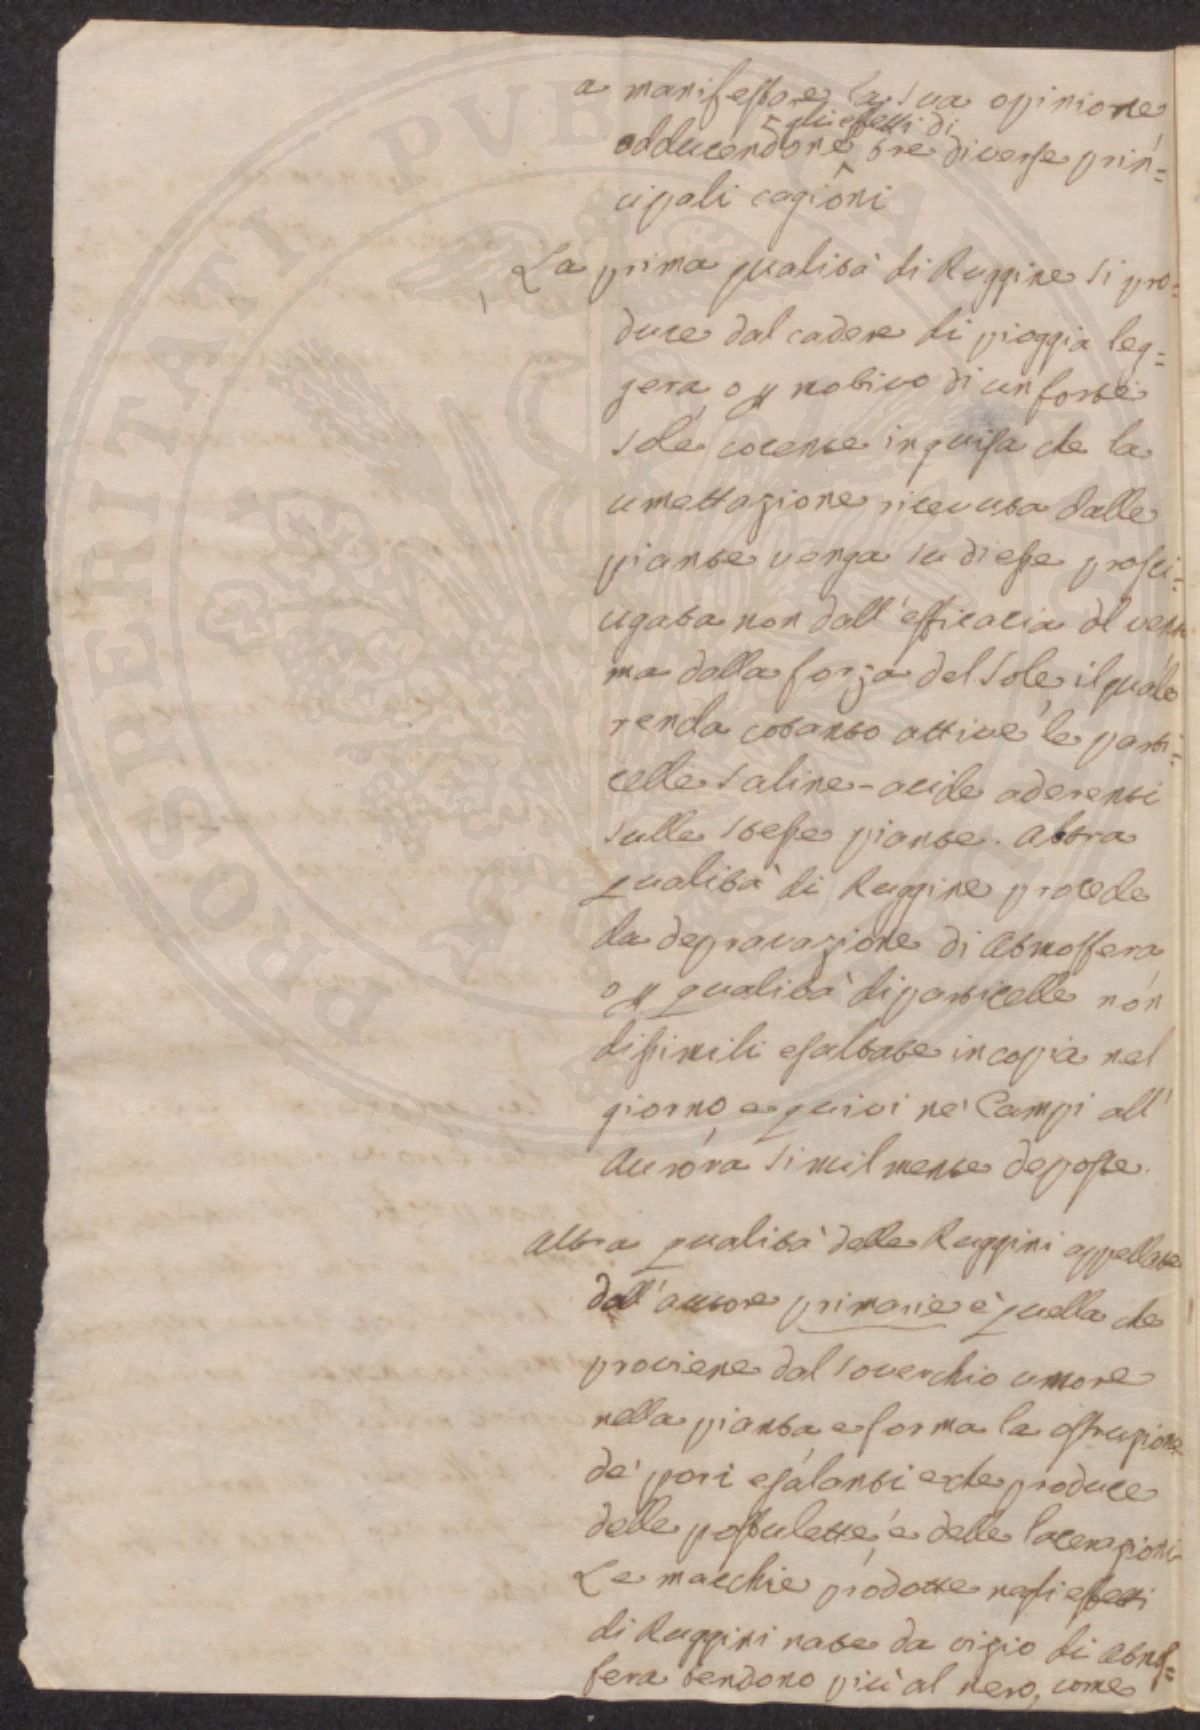 a manifestare la sua opinione
gli effetti di
adducendone tre diverse prin=
cipali cagioni
La prima qualità di Ruggine si pro=
duce dal cadere di pioggia leg=
gera, o p motivo di un forte
sole cocente in guisa che la
umettazione ricevuta dalle
piante venga su di esse prosci=
ugata non dall'efficacia del vento
ma dalla forza del Sole, il quale
renda cotanto attive le parti=
celle saline-acide aderenti
sulle stesse piante. Altra
qualità di Ruggine procede
da depravazione di Atmosfera
o p qualità di particelle non
dissimili esaltate in copia nel
giorno, e quivi ne' Campi all'
Aurora similmente deposte.
Altra qualità delle Ruggini appellate
dall'autore primarie è quella che
proviene dal soverchio umore
nella pianta e forma la ostruzione
de' pori esalanti e che produce
delle postulette, e delle lacerazioni
Le macchie prodotte negli effetti
di Ruggini nate da vizio di Atmos=
fera tendono più al nero, come
PROSPERITATI PVBLICAE